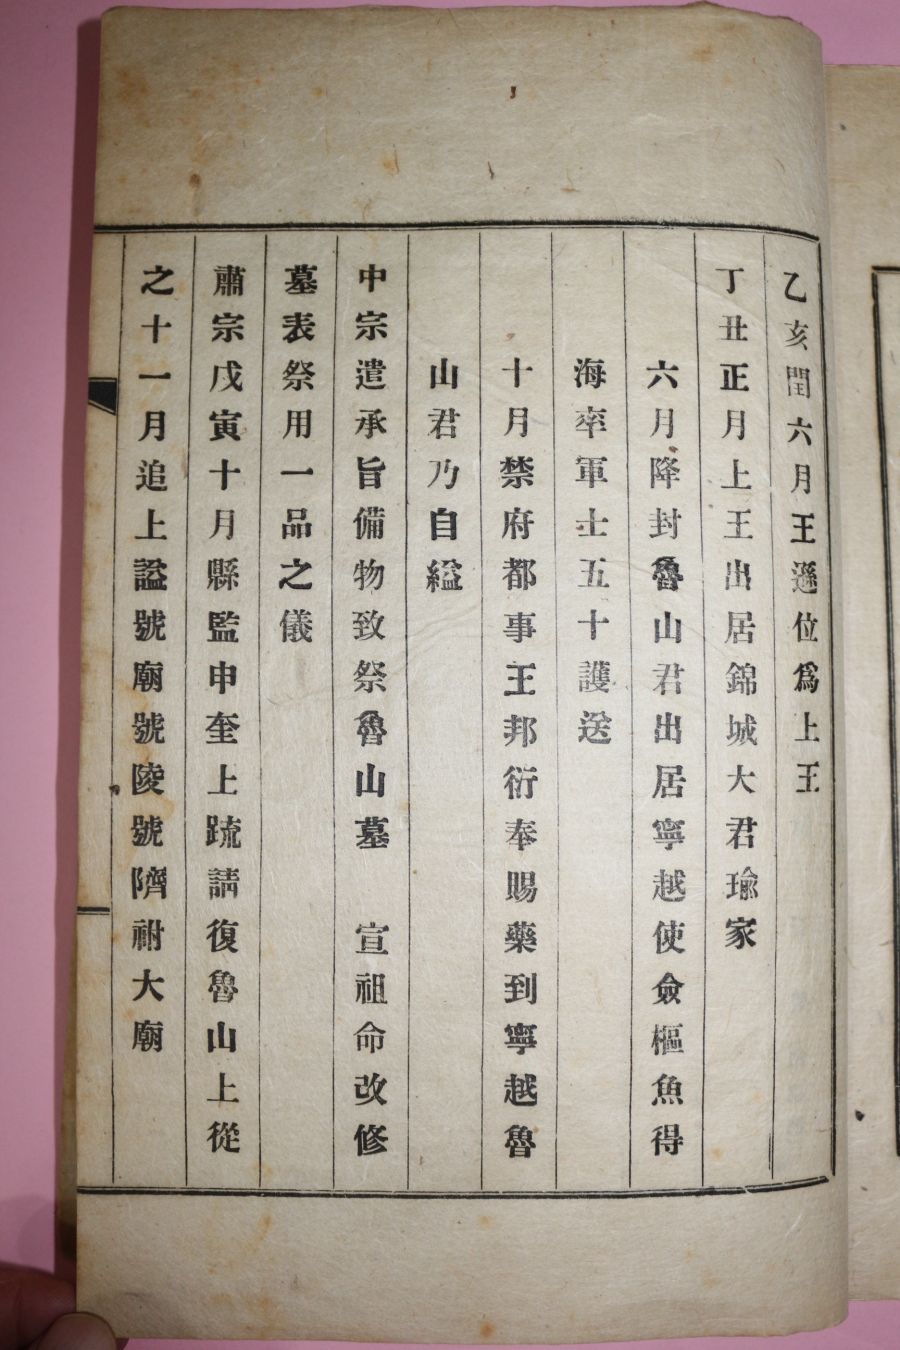 乙亥閏六月王遜位爲上王
丁丑正月上王出居錦城大君瑜家
六月降封魯山君出居寧越使僉樞魚得
海率軍士五十護送
十月禁府都事王邦衍奉賜藥到寧越魯
山君乃自縊
中宗遣承旨備物致祭魯山墓　宣祖命改修
墓表祭用一品之儀
肅宗戊寅十月縣監申奎上疏請復魯山上從
之十一月追上諡號廟號陵號隮祔大廟